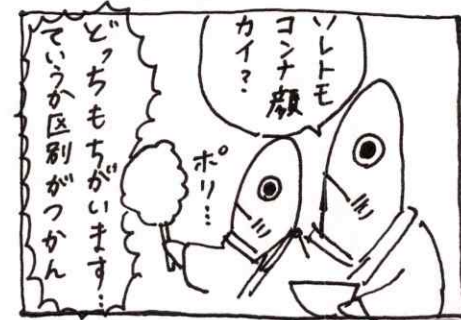 ソレトモ
コンナ顔
カイ?
ポリ…
どっちもちがいます…
ていうか区別がつかん